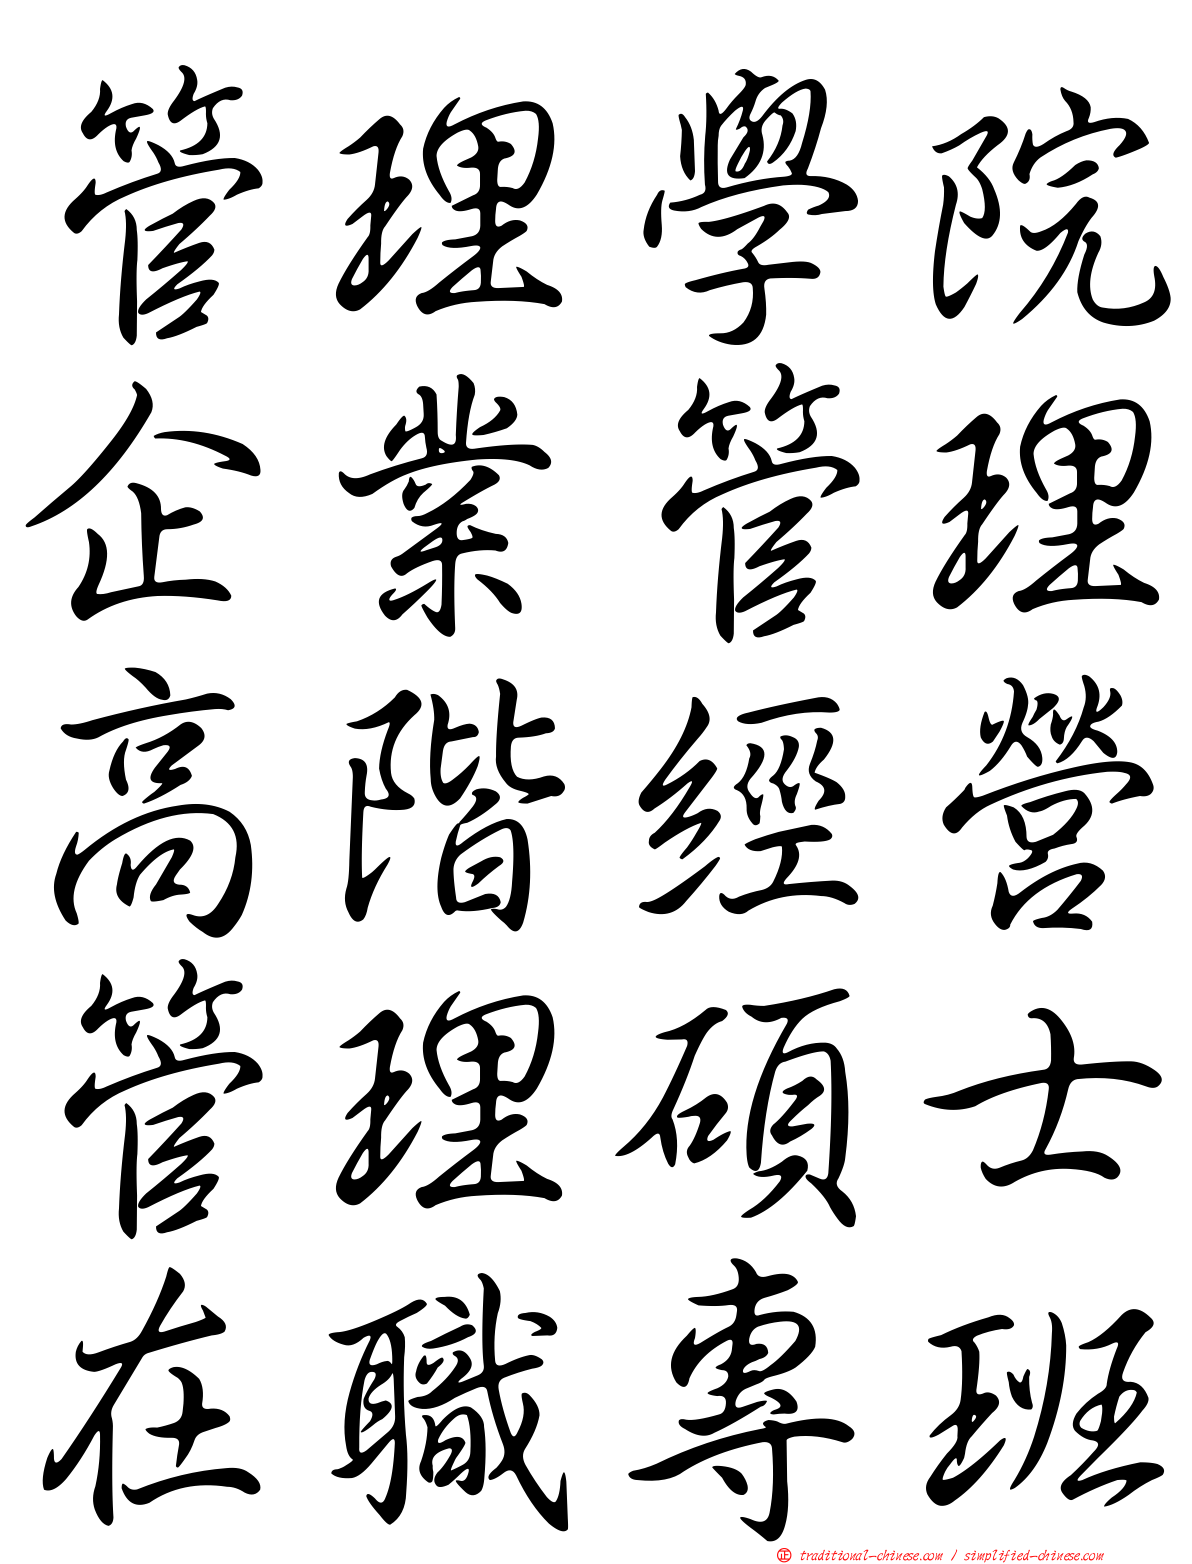 管理學院
企業管理
高階經營
管理碩士
在職專班
正 traditional-chinese.com / simplified-chinese.com